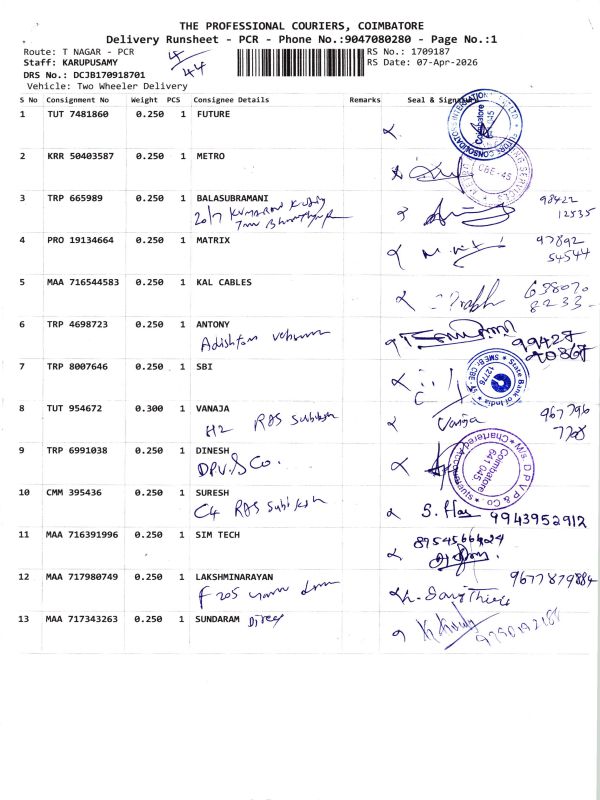 THE PROFESSIONAL COURIERS, COIMBATORE
Delivery Runsheet - PCR - Phone No.:9047080280 - Page No.:1
Route: T NAGAR - PCR
Staff: KARUPUSAMY
DRS No.: DCJB170918701
Vehicle: Two Wheeler Delivery
4
44
RS No.: 1709187
RS Date: 07-Apr-2026
S No Consignment No Weight PCS Consignee Details Remarks Seal & Signature
1 TUT 7481860 0.250 1 FUTURE
2 KRR 50403587 0.250 1 METRO
CBE-45
3 TRP 665989 0.250 1 BALASUBRAMANI
98422
12535
4 PRO 19134664 0.250 1 MATRIX
97892
54544
5 MAA 716544583 0.250 1 KAL CABLES
8233
6 TRP 4698723 0.250 1 ANTONY
99427
7 TRP 8007646 0.250 1 SBI
State Bank of India
12776
8 TUT 954672 0.300 1 VANAJA
H2
Vanja
967796
9 TRP 6991038 0.250 1 DINESH
DPV & Co.
M/s. D P V P & Co
Chartered Accountants
Coimbatore
641 045
10 CMM 395436 0.250 1 SURESH
C4
9943952912
11 MAA 716391996 0.250 1 SIM TECH
12 MAA 717980749 0.250 1 LAKSHMINARAYAN
F 205
9677879884
13 MAA 717343263 0.250 1 SUNDARAM